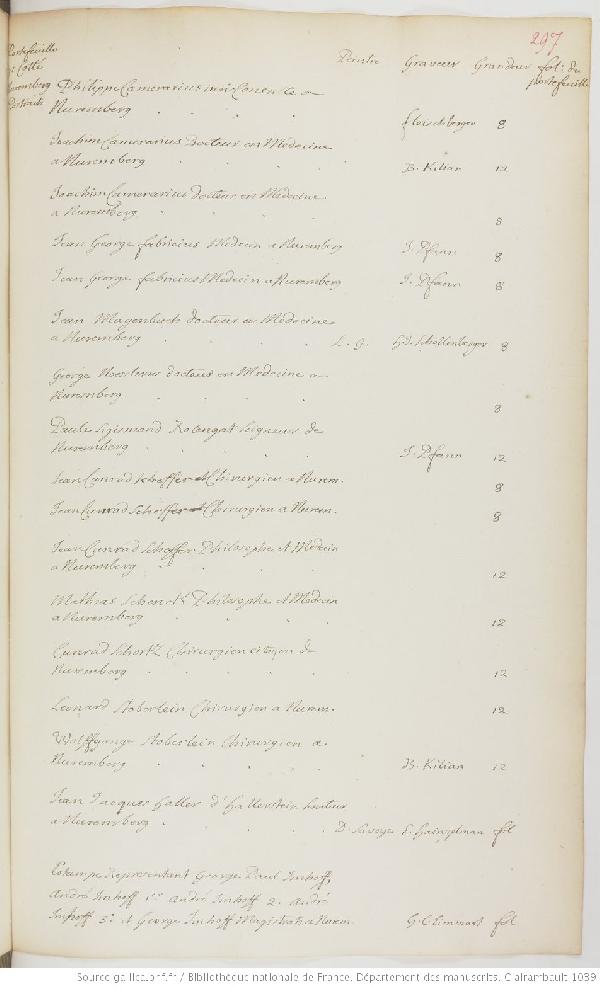 297
Portefeuille
Cotté
Nuremberg
Portraits
Peintre Graveur Grandeur fol: du
portefeuille
Philippe Camerarius
Nuremberg Fleischberger 8
Joachim Camerarius Docteur en Medecine
a Nuremberg B. Kilian 12
Joachim Camerarius docteur en Medecine
a Nuremberg 8
Jean George fabricius Medecin a Nuremberg J. Pfann 8
Jean George fabricius Medecin a Nuremberg J. Pfann 8
Jean Magenbuch docteur en Medecine
a Nuremberg L. G. H. J. Schollenberger 8
George Noeslerus docteur en Medecine a
Nuremberg 8
Paule Sigismond Seigneur de
Nuremberg J. Pfann 12
Jean Conrad Scheffer Chirurgien a Nurem. 8
Jean Conrad Scheffer Chirurgien a Nurem. 8
Jean Conrad Scheffer Philosophe et Medecin
a Nuremberg 12
Mathias Schenck Philosophe et Medecin
a Nuremberg 12
Conrad Schortz Chirurgien citoyen de
Nuremberg 12
Leonard Stoberlein Chirurgien a Nurem. 12
Wolffgange Stoberlein Chirurgien a
Nuremberg B. Kilian 12
Jean Jacques Haller d'Hallerstein
a Nuremberg D. Savoye E. Hainzelman fol
Estampe Representant George Paul Imhoff,
André Imhoff 1er André Imhoff 2. André
Imhoff 3e et George Imhoff Magistrats a Nurem. G. C. Eimmart fol
Source gallica.bnf.fr / Bibliothèque nationale de France. Département des manuscrits. Clairambault 1039